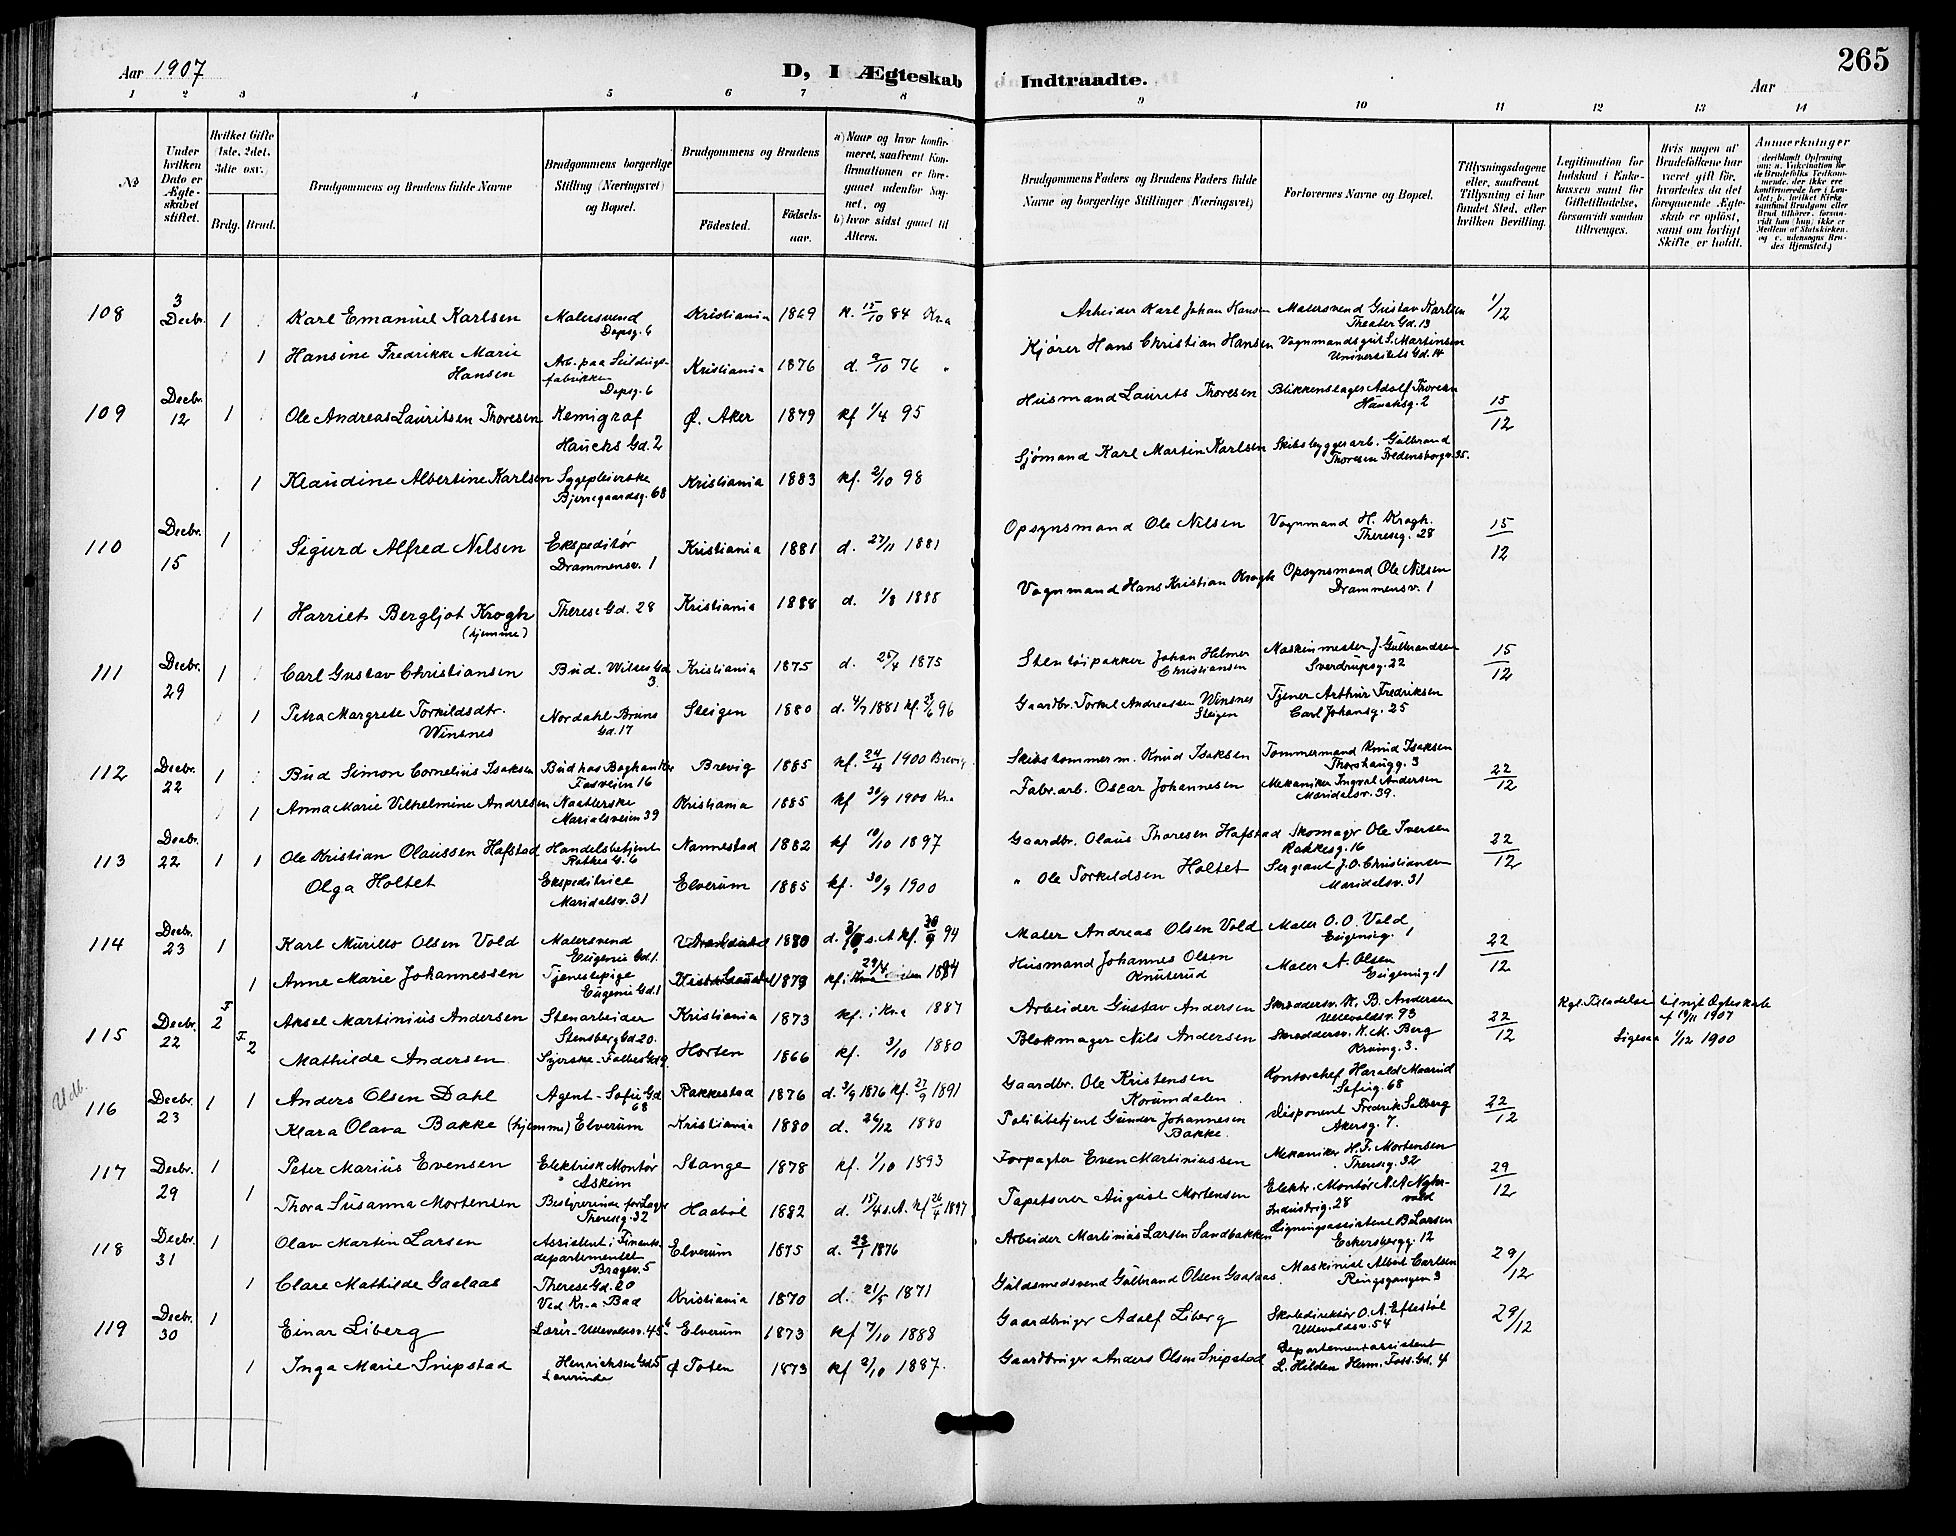 Aar 1907
D, I Ægteskab Indtraadte.
265
Aar
1 2 3 4 5 6 7 8 9 10 11 12 13 14
№
Under hvilken Dato er Ægteskabet stiftet.
Hvilket Gifte (1ste, 2det, 3die osv.)
Brdg. Brud.
Brudgommens og Brudens fulde Navne
Brudgommens borgerlige Stilling (Næringsvei) og Bopæl.
Brudgommens og Brudens
Födested.
Födselsaar.
a) Naar og hvor konfirmeret, saafremt Konfirmationen er foregaaet udenfor Sognet, og
b) hvor sidst gaaet til Alters.
Brudgommens Faders og Brudens Faders fulde Navne og borgerlige Stillinger (Næringsvei)
Forlovernes Navne og Bopæl.
Tillysningsdagene eller, saafremt Tillysning ei har fundet Sted, efter hvilken Bevilling.
Legitimation for Indskud i Enkekassen samt for Giftetilladelse, forsaavidt saadan tiltrænges.
Hvis nogen af Brudefolkene har været gift för, hvorledes da det foregaaende Ægteskab er oplöst, samt om lovligt Skifte er holdt.
Anmærkninger
108 3 Decbr. 1 Karl Emanuel Karlsen Malersvend Dopsg. 6 Kristiania 1869 k. 15/10 84 Kra Arbeider Karl Johan Hansen Malersvend Gustav Karlsen Theater Gd. 13 1/12
1 Hansine Fredrikke Marie Hansen Arb. paa Seildugsfabrikken Dopsg. 6 Kristiania 1876 d. 9/10 76 " Kjører Hans Christian Hansen Vognmandsgut S. Martinsen Universitets Gd. 14
109 Decbr. 12 1 Ole Andreas Lauritsen Thoresen Kemigraf Hauchs Gd. 2 Ø. Aker 1879 kf 1/4 95 Husmand Laurits Thoresen Blikkenslager Adolf Thoresen Hauchsg. 2 15/12
1 Klaudine Albertine Karlsen Sygepleierske Bjerregaardsg. 68 Kristiania 1883 kf. 2/10 98 Sjømand Karl Martin Karlsen Skibsbyggerarb. Gulbrand Thoresen Fredensborgv. 35.
110 Decbr. 15 1 Sigurd Alfred Nilsen Ekspeditør Drammensv. 1 Kristiania 1881 d. 27/11 1881 Opsynsmand Ole Nilsen Vognmand H. Krogh. Theresg. 28 15/12
1 Harriet Bergljot Krogh (hjemme) Therese Gd. 28 Kristiania 1888 d. 1/8 1888 Vognmand Hans Kristian Krogh Opsynsmand Ole Nilsen Drammensv. 1
111 Decbr. 29 1 Carl Gustav Christiansen Bud. Wilses Gd. 3. Kristiania 1875 d. 25/4 1875 Stentøipakker Johan Helmer Christiansen Maskinmester J. Gulbrandsen Sverdrupsg. 22 15/12
1 Petra Margrete Torkildsdtr. Winsnes Nordahl Bruns Gd. 17 Steigen 1880 d. 4/7 1881 kf. 28/6 96 Gaardbr. Torkel Andreassen Winsnes Steigen Tjener Arthur Fredriksen Carl Johansg. 25
112 Decbr. 22 1 Bud Simon Cornelius Isaksen Bud hos Boghandler Fasveien 16 Brevig 1885 kf. 24/4 1900 Brevig. Skibstømmerm. Knud Isaksen Tømmermand Knud Isaksen Thorshaugg. 3 22/12
1 Anna Marie Vilhelmine Andresen Naatlerske Marialsveien 39 Kristiania 1885 kf 30/9 1900 Kra Fabr.arb. Oscar Johannesen Mekaniker Ingval Andersen Maridalsv. 39.
113 Decbr. 22 1 1 Ole Kristian Olaussen Hafstad Handelsbetjent Ratkes G. 6 Nannestad 1882 kf 10/10 1897 Gaardbr. Olaus Thoresen Hafstad Skomager Ole Iversen Rakkesg. 16 22/12
Olga Holtet Ekspeditrice Maridalsv. 31 Elverum 1885 kf. 30/9 1900 " Ole Torkildsen Holtet Sergeant J. O. Christiansen Maridalsv. 31
114 Decbr. 23 1 Karl Murillo Olsen Vold Malersvend Eugenie Gd. 1. 1880 94 Maler Andreas Olsen Vold Maler O. O. Vold Eugenieg. 1 22/12
1 Anne Marie Johannessen Tjenestepige Eugenie Gd. 1 1879 Husmand Johannes Olsen Knuterud Maler A. Olsen Eugenieg. 1
115 Decbr. 22 F. 2 Aksel Martinius Andersen Stenarbeider Stensberg Gd. 20. Kristiania 1873 kf. i Kra 1887 Arbeider Gustav Andersen Skræddersv. K. B. Andersen Ullevoldsv. 93 22/12 Kgl. Tilladelse til nyt Ægteskab af 19/11 1907
F. 2 Mathilde Andersen Syerske Falbes Gd 9. Horten 1866 kf. 3/10 1880 Blokmager Nils Andersen Skræddersv. K. M. Berg Kruing. 3. Ligesaa 1/12 1900
Udb.
116 Decbr. 23 1 1 Anders Olsen Dahl Agent - Sofie Gd 68 Rakkestad 1876 d. 3/9 1876 kf. 27/9 1891 Gaardbr. Ole Kristensen Korumdalen Kontorchef Harald Maarud Sofieg. 68 22/12
Klara Olava Bakke (hjemme) Elverum Kristiania 1880 d. 26/12 1880 Politibetjent Gunder Johannesen Bakke. Disponent Fredrik Salberg Akersg. 7.
117 Decbr. 29 1 Peter Marius Evensen Elektrisk Montør Askim Stange 1878 kf. 1/10 1893 Forpagter Even Martiniussen Mekaniker H. F. Mortensen Theresg. 32 29/12
1 Thora Susanna Mortensen Bestyrerinde for Lager Theresg. 32 Haabøl 1882 d. 15/4 s.A. kf 26/4 1897 Tapetserer August Mortensen Elektr. Montør N. A. Industrig. 28
118 Decbr. 31 1 Olav Martin Larsen Assistent i Finansdepartementet Bragev. 5 Elverum 1875 d. 23/1 1876 Arbeider Martinius Larsen Sandbakken Ligningsassistent B. Larsen Eckersbergg. 12 29/12
1 Clare Mathilde Gaalaas Therese Gd. 20 Ved Kr.a Bad Kristiania 1870 d. 21/5 1871 Guldsmedsvend Gulbrand Olsen Gaalaas Maskinist Albert Carlsen Ringsgangen 3
119 Decbr. 30 1 Einar Liberg Lærer - Ullevoldsv. 45 b Elverum 1873 kf 7/10 1888 Gaardbruger Adolf Liberg Skoledirektør O. A. Eftestøl Ullevoldsv. 54 29/12
1 Inga Marie Snipstad Henriksens Gd 5 Lærerinde Ø Toten 1873 kf 2/10 1887. Gaardbruger Anders Olsen Snipstad Departementassistent L. Hilden Herm. Foss. Gd. 4